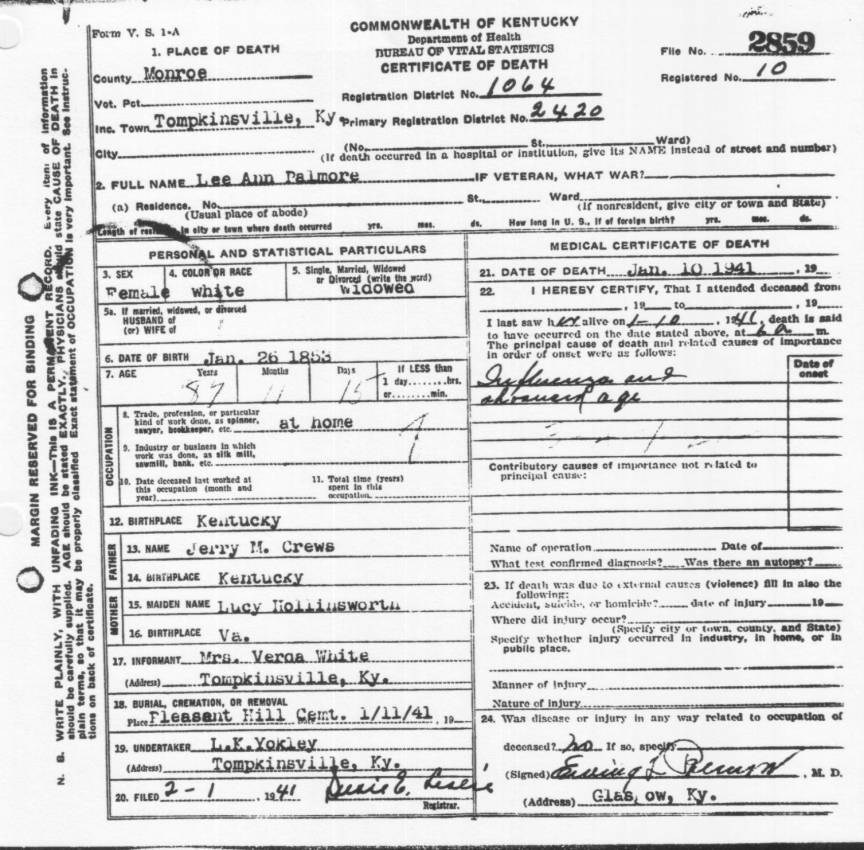 Form V. S. 1-A
COMMONWEALTH OF KENTUCKY
Department of Health
BUREAU OF VITAL STATISTICS
CERTIFICATE OF DEATH
File No. 2859
Registered No. 10
1. PLACE OF DEATH
County Monroe
Registration District No. 1064
Vot. Pct.
Inc. Town Tompkinsville, Ky. Primary Registration District No. 2420
City (No. St. Ward)
(If death occurred in a hospital or institution, give its NAME instead of street and number)
2. FULL NAME Lee Ann Palmore IF VETERAN, WHAT WAR?
(a) Residence. No. St., Ward
(Usual place of abode) (If nonresident, give city or town and State)
Length of residence in city or town where death occurred yrs. mos. ds. How long in U. S., if of foreign birth? yrs. mos. ds.
PERSONAL AND STATISTICAL PARTICULARS
3. SEX 4. COLOR OR RACE 5. Single, Married, Widowed
or Divorced (write the word)
Female White Widowed
5a. If married, widowed, or divorced
HUSBAND of
(or) WIFE of
6. DATE OF BIRTH Jan. 26 1853
7. AGE Years Months Days If LESS than
1 day........hrs.
or........min.
87 11 15
OCCUPATION
8. Trade, profession, or particular
kind of work done, as spinner,
sawyer, bookkeeper, etc. at home
9. Industry or business in which
work was done, as silk mill,
sawmill, bank, etc.
10. Date deceased last worked at
this occupation (month and
year)
11. Total time (years)
spent in this
occupation
12. BIRTHPLACE Kentucky
FATHER
13. NAME Jerry M. Crews
14. BIRTHPLACE Kentucky
MOTHER
15. MAIDEN NAME Lucy Hollinsworth
16. BIRTHPLACE Va.
17. INFORMANT Mrs. Verna White
(Address) Tompkinsville, Ky.
18. BURIAL, CREMATION, OR REMOVAL
Place Pleasant Hill Cemt. 1/11/41, 19
19. UNDERTAKER L.K.Yokley
(Address) Tompkinsville, Ky.
20. FILED 2-1, 1941 Susie E. Leslie
Registrar.
MEDICAL CERTIFICATE OF DEATH
21. DATE OF DEATH Jan. 10 1941, 19
22. I HEREBY CERTIFY, That I attended deceased from
, 19 to , 19
I last saw her alive on 1-10, 1941, death is said
to have occurred on the date stated above, at 6 a m.
The principal cause of death and related causes of importance
in order of onset were as follows:
Date of
onset
Influenza and
advanced age
Contributory causes of importance not related to
principal cause:
Name of operation Date of
What test confirmed diagnosis? Was there an autopsy?
23. If death was due to external causes (violence) fill in also the
following:
Accident, suicide, or homicide? date of injury 19
Where did injury occur?
(Specify city or town, county, and State)
Specify whether injury occurred in industry, in home, or in
public place.
Manner of injury
Nature of injury
24. Was disease or injury in any way related to occupation of
deceased? no If so, specify
(Signed) , M. D.
(Address) Glasgow, Ky.
MARGIN RESERVED FOR BINDING
N. B. WRITE PLAINLY, WITH UNFADING INK—THIS IS A PERMANENT RECORD. Every item of information
should be carefully supplied. AGE should be stated EXACTLY. PHYSICIANS should state CAUSE OF DEATH in
plain terms, so that it may be properly classified. Exact statement of OCCUPATION is very important. See instruc-
tions on back of certificate.